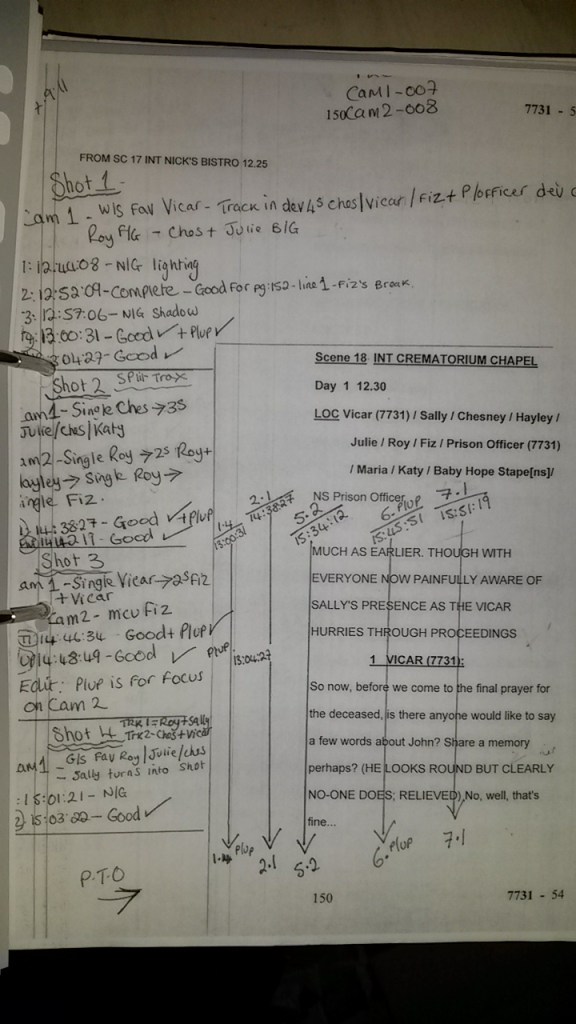 Cam1-007
150 Cam2-008
7731 - 5
FROM SC 17 INT NICK'S BISTRO 12.25
Shot 1
Cam 1 - W/S Fav Vicar - Track in dev 4s Ches/Vicar/Fiz + P/officer dev
Roy F/G - Ches + Julie B/G
1: 12:44:08 - N/G lighting
2: 12:52:09 - Complete - Good for pg:152 - line 1 - Fiz's Break.
3: 12:57:06 - N/G Shadow
13:00:31 - Good ✓ + Plup ✓
3:04:27 - Good ✓
Scene 18 INT CREMATORIUM CHAPEL
Day 1 12.30
LOC Vicar (7731) / Sally / Chesney / Hayley /
Julie / Roy / Fiz / Prison Officer (7731)
/ Maria / Katy / Baby Hope Stape[ns]/
NS Prison Officer
Shot 2 Split Trax
am1 - Single Ches → 3S
Julie/Ches/Katy
am2 - Single Roy → 2S Roy +
Hayley → Single Roy →
ingle Fiz.
1) 14:38:27 - Good ✓ + Plup
- Good ✓
Shot 3
am 1 - Single Vicar → 2S Fiz
+ Vicar
Cam2 - mcu Fiz
14:46:34 - Good + Plup ✓
14:48:49 - Good ✓
Edit: Plup is for focus
on Cam 2
Shot 4 TRK 1 = Roy + Sally
Trk 2 - Ches + Vicar
am1 - G/S Fav Roy/Julie/Ches
= Sally turns into shot
: 15:01:21 - N/G
2) 15:03:22 - Good ✓
P.T.O
→
1.4
13:00:31
2.1
14:38:27
5.2
15:34:12
6. Plup
15:45:51
7.1
15:51:19
MUCH AS EARLIER. THOUGH WITH
EVERYONE NOW PAINFULLY AWARE OF
SALLY'S PRESENCE AS THE VICAR
HURRIES THROUGH PROCEEDINGS
Plup 13:04:27
1 VICAR (7731):
So now, before we come to the final prayer for
the deceased, is there anyone would like to say
a few words about John? Share a memory
perhaps? (HE LOOKS ROUND BUT CLEARLY
NO-ONE DOES; RELIEVED) No, well, that's
fine...
1.4 Plup
2.1
5.2
6. Plup
7.1
150
7731 - 54